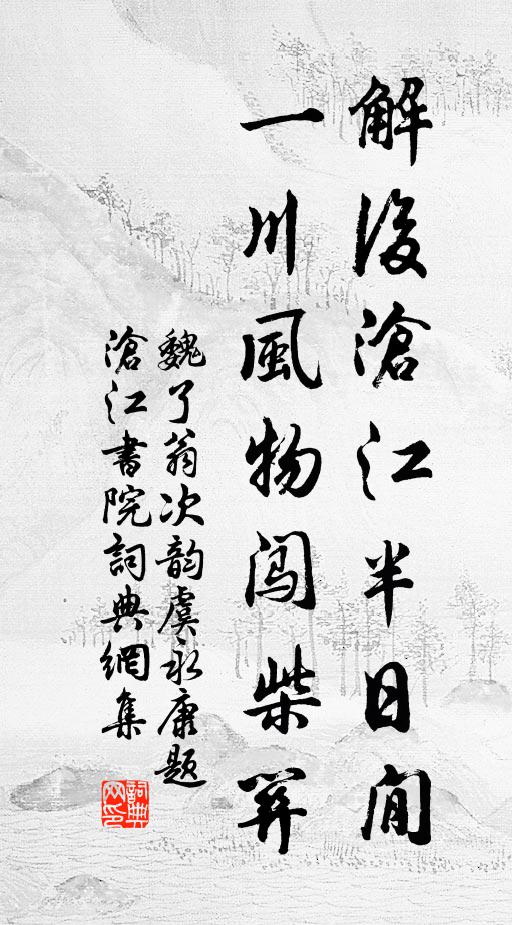 解後滄江半日閒
一川風物闖柴關
魏了翁次韵虞永康題
滄江書院詞典網集
詞典
网印